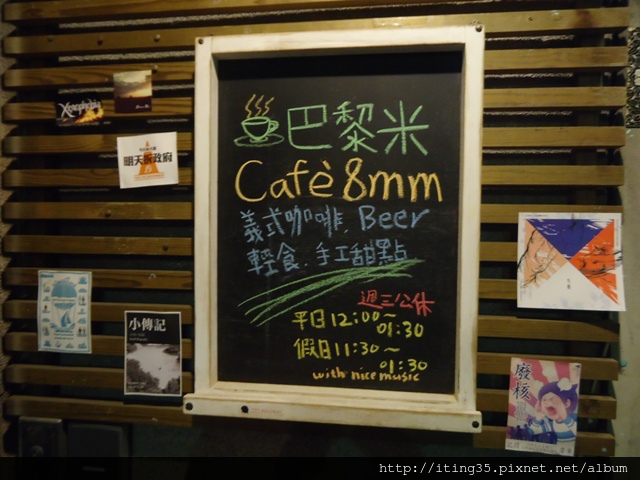 巴黎米
Cafè 8mm
義式咖啡. Beer
輕食. 手工甜點
週三公休
平日 12:00~
01:30
假日 11:30~
01:30
with nice music
Xenophobia
明天拆政府
小傳記
廢核
http://iting35.pixnet.net/album